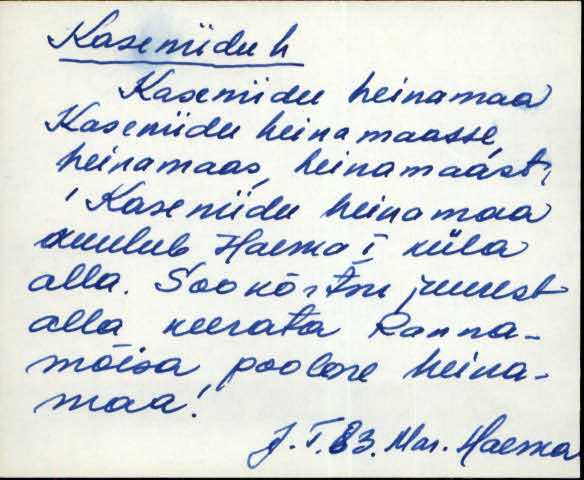 Kaseniidu h
Kaseniidu heinamaa
Kaseniidu heinamaasse,
heinamaas, heinamaast,
! Kaseniidu heinamaa
kuulub Haeska i küla
alla. Sookõrtsi juurest
alla keerata Ranna-
mõisa poolore heina-
maa!
J. T. 83. Mar. Haeska